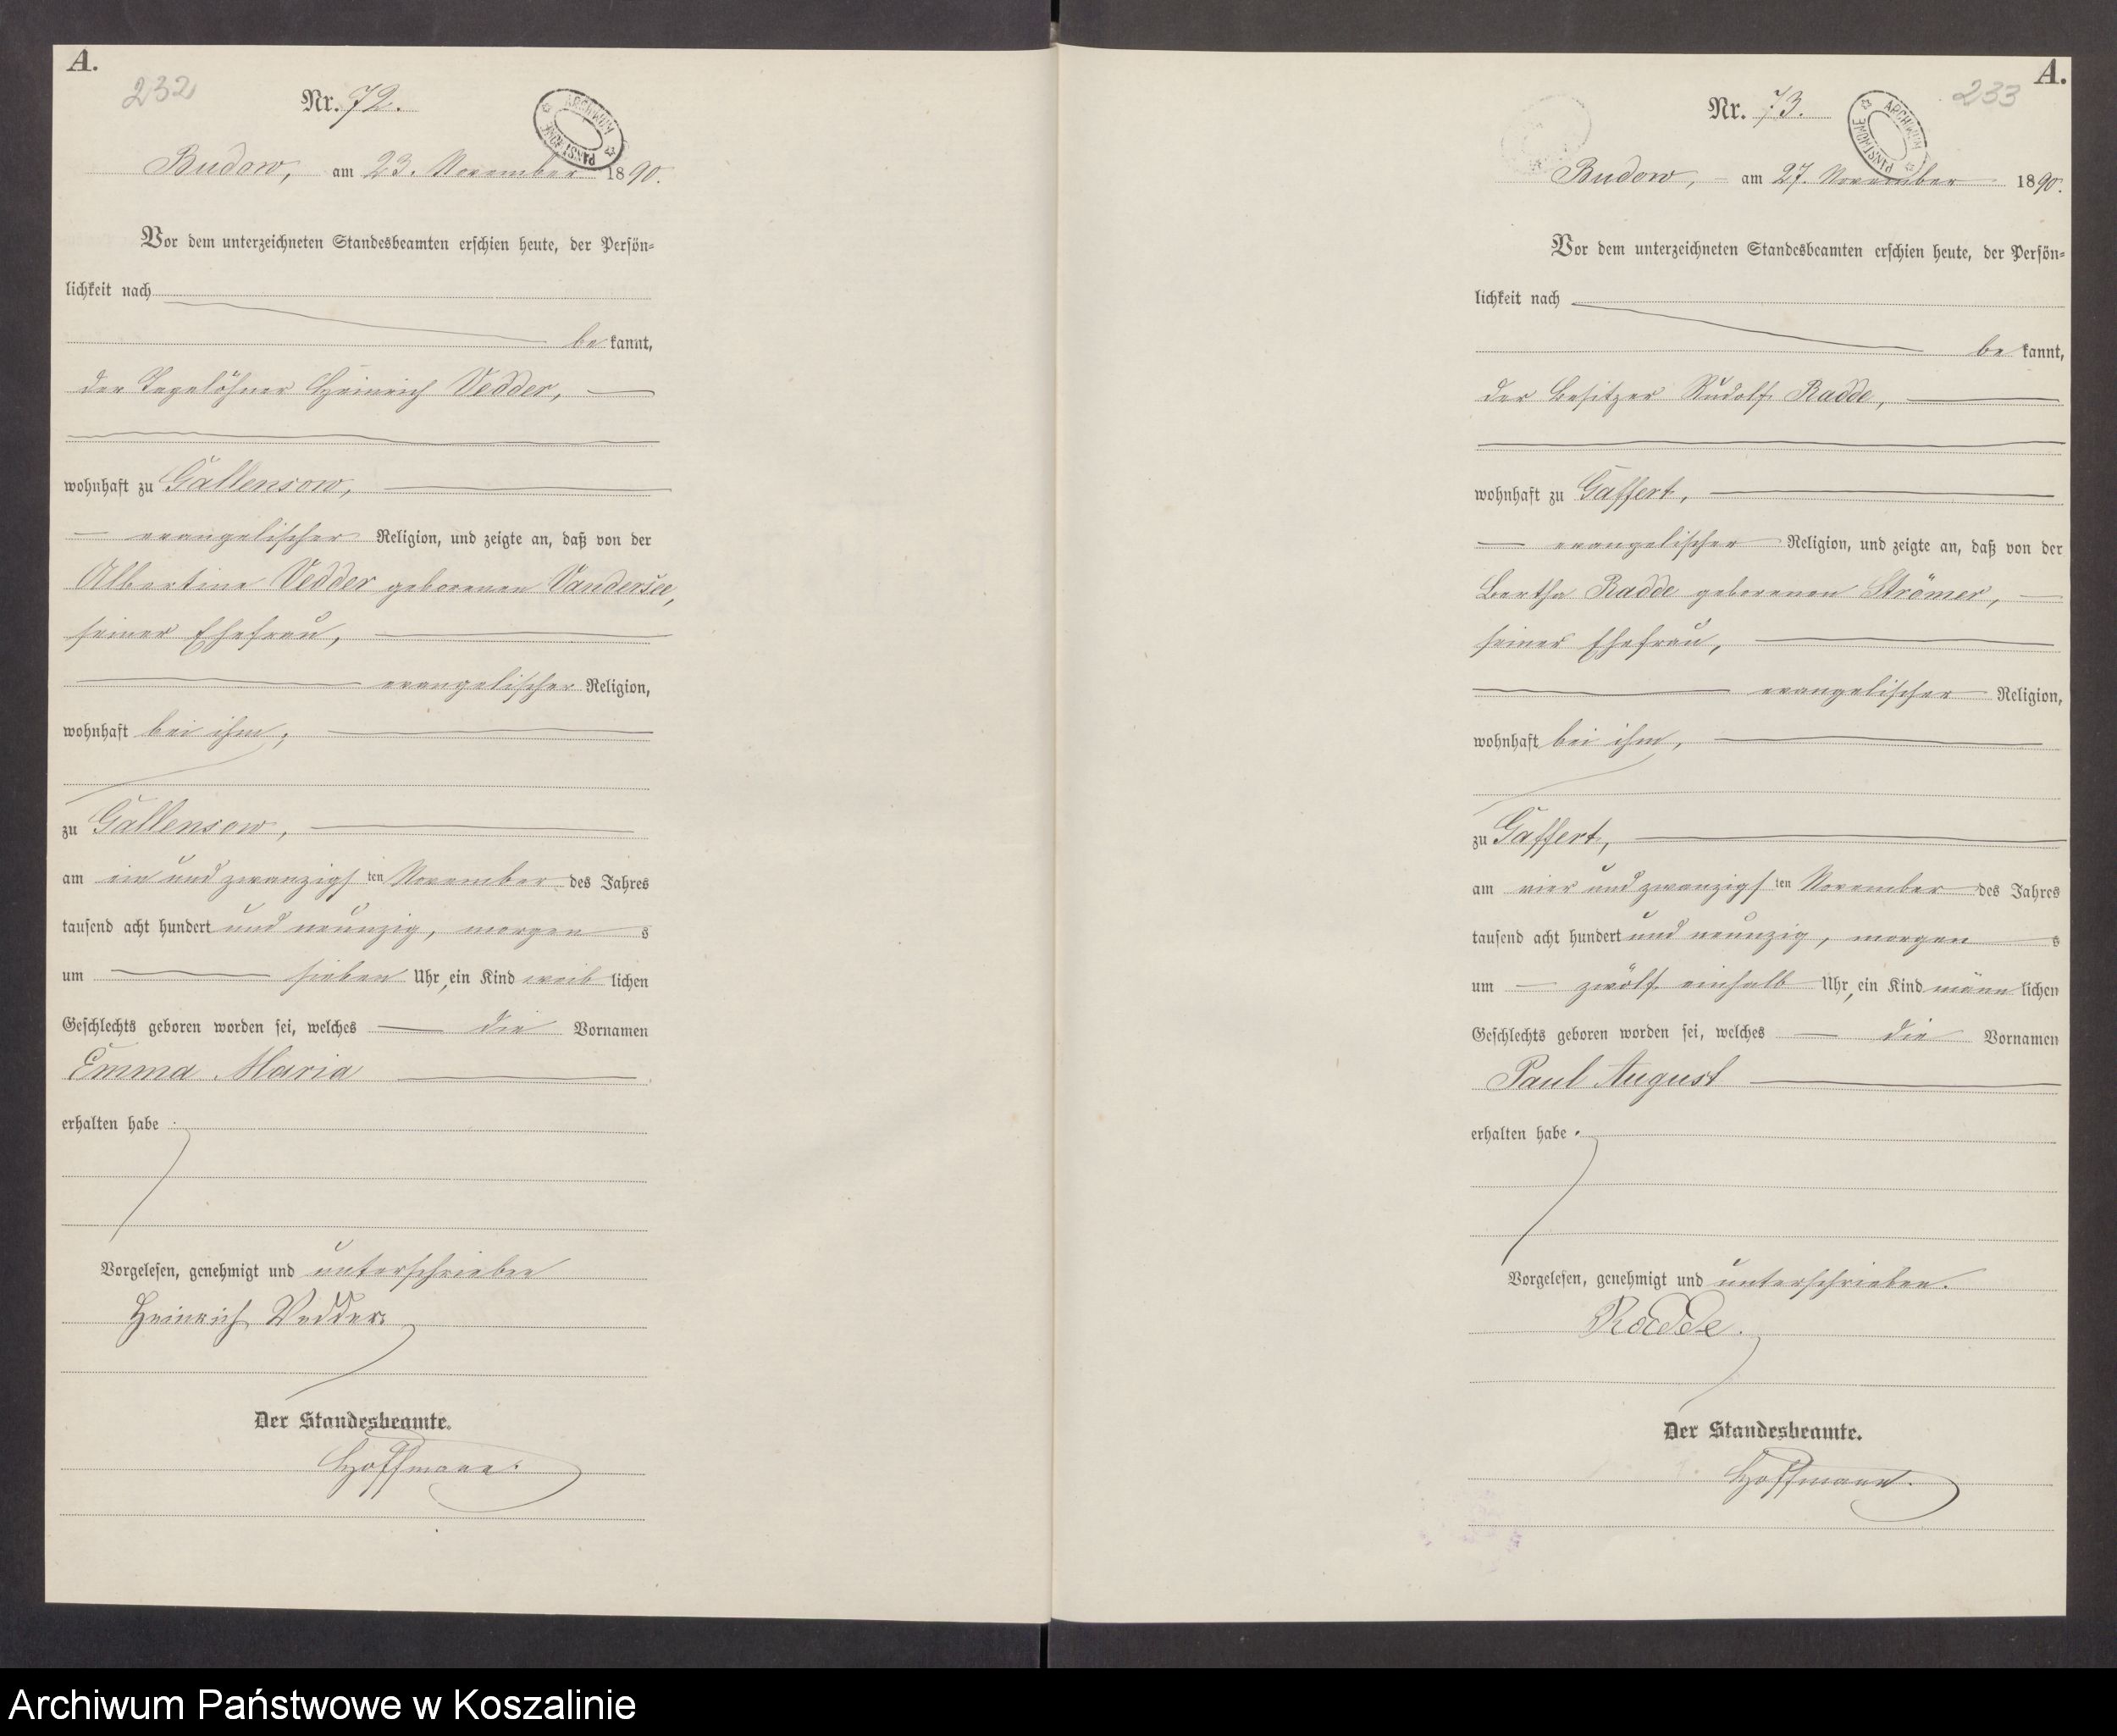 A.
232
Nr. 72.
ARCHIWUM PAŃSTWOWE
Budow, am 23. November 1890.
Vor dem unterzeichneten Standesbeamten erschien heute, der Persön-
lichkeit nach
be kannt,
der Tagelöhner Heinrich Vedder,
wohnhaft zu Gallensow,
evangelischer Religion, und zeigte an, daß von der
Albertine Vedder geborenen Vandersee,
seiner Ehefrau,
evangelischer Religion,
wohnhaft bei ihm,
zu Gallensow,
am ein und zwanzigs ten November des Jahres
tausend acht hundert und neunzig, morgen s
um sieben Uhr, ein Kind weib lichen
Geschlechts geboren worden sei, welches die Vornamen
Emma Maria
erhalten habe.
Vorgelesen, genehmigt und unterschrieben
Heinrich Vedder
Der Standesbeamte.
Hoffmann.
A.
233
Nr. 73.
ARCHIWUM PAŃSTWOWE
Budow, am 27. November 1890.
Vor dem unterzeichneten Standesbeamten erschien heute, der Persön-
lichkeit nach
be kannt,
der Besitzer Rudolf Radde,
wohnhaft zu Gaffert,
evangelischer Religion, und zeigte an, daß von der
Bertha Radde geborenen Strömer,
seiner Ehefrau,
evangelischer Religion,
wohnhaft bei ihm,
zu Gaffert,
am vier und zwanzigs ten November des Jahres
tausend acht hundert und neunzig, morgen s
um zwölf einhalb Uhr, ein Kind männ lichen
Geschlechts geboren worden sei, welches die Vornamen
Paul August
erhalten habe.
Vorgelesen, genehmigt und unterschrieben.
Radde.
Der Standesbeamte.
Hoffmann.
Archiwum Państwowe w Koszalinie